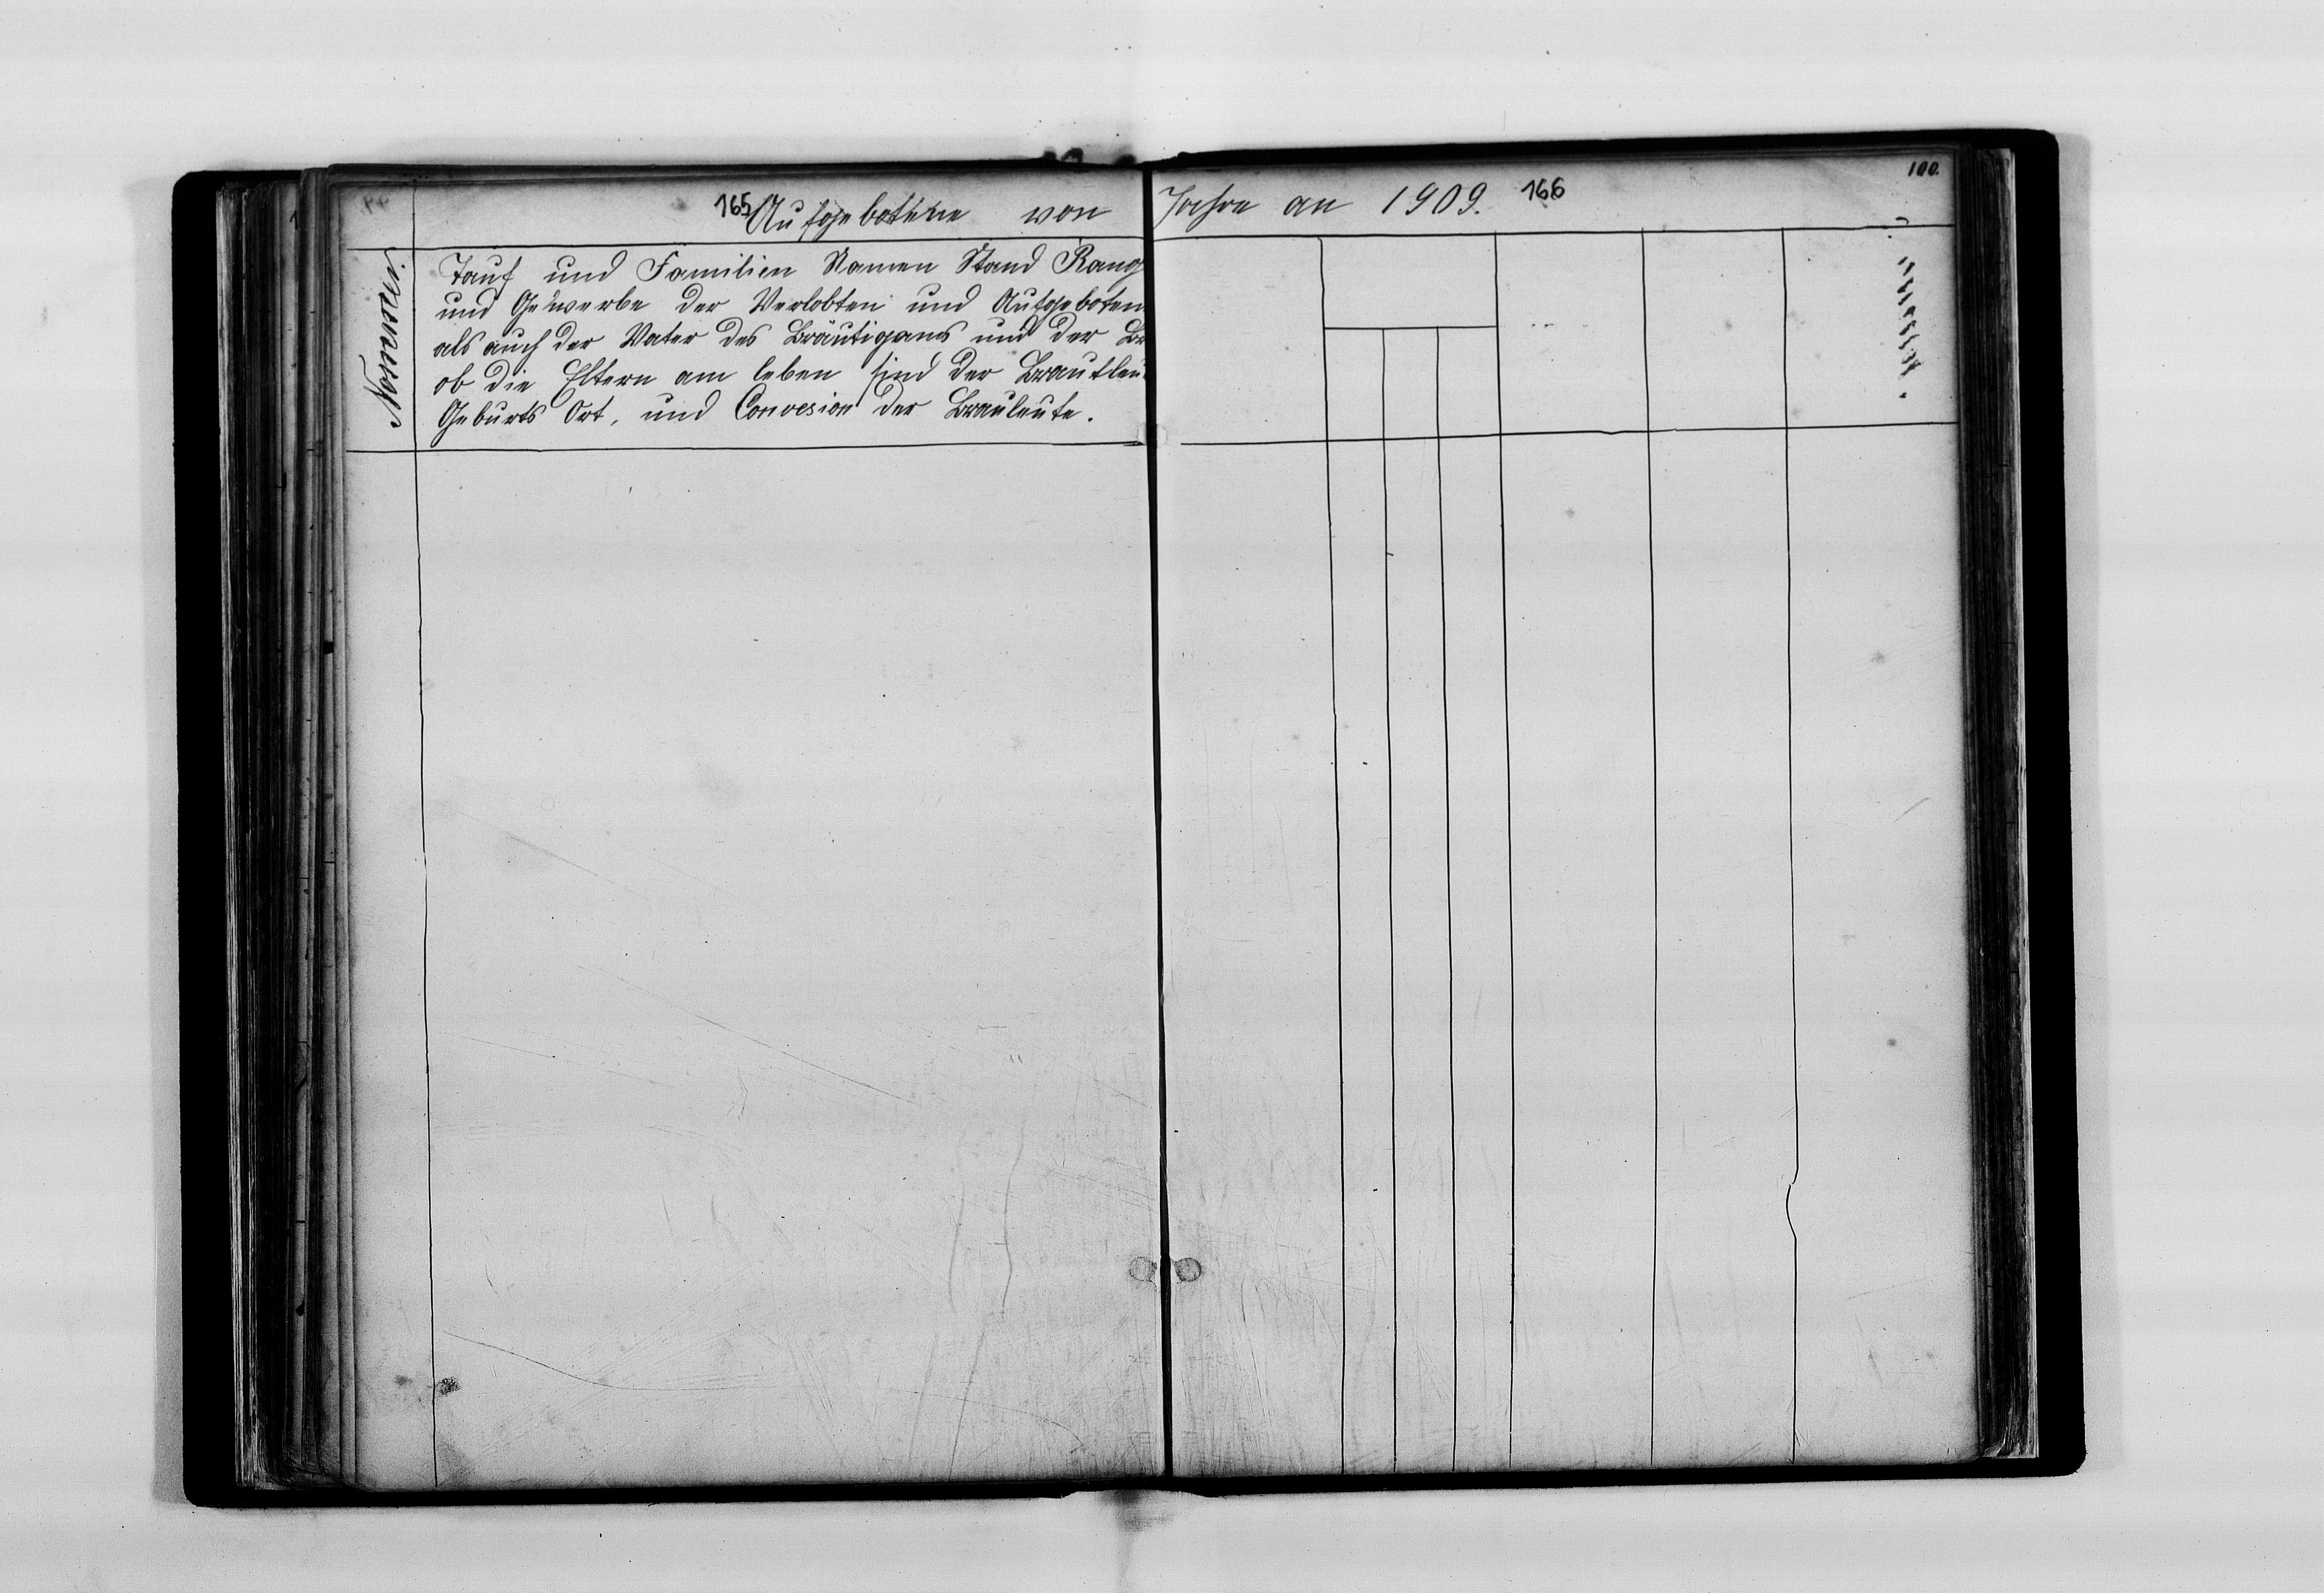 165 Aufgebothene von Jahre an 1909. 166
100.
Nomeren.
Tauf und Familien Namen Stand Rang
und Gewerbe der Verlobten und Aufgeboten
als auch der Vater des Bräutigams und der Br
ob die Eltern am leben sind der Brautleu
Geburts Ort, und Convesion der Brauleute.